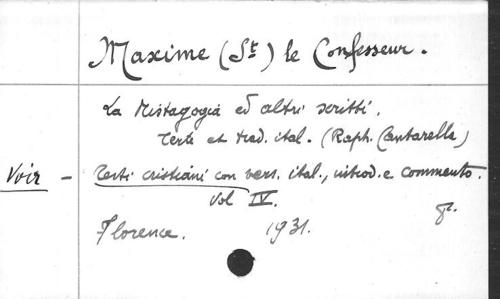 Maxime (St) le Confesseur.
La Mistagogia ed altri scritti.
Texte et trad. ital. (Raph. Cantarella)
Voir - Testi cristiani con vers. ital., introd. e commento.
Vol IV.
Florence. 1931. gr.